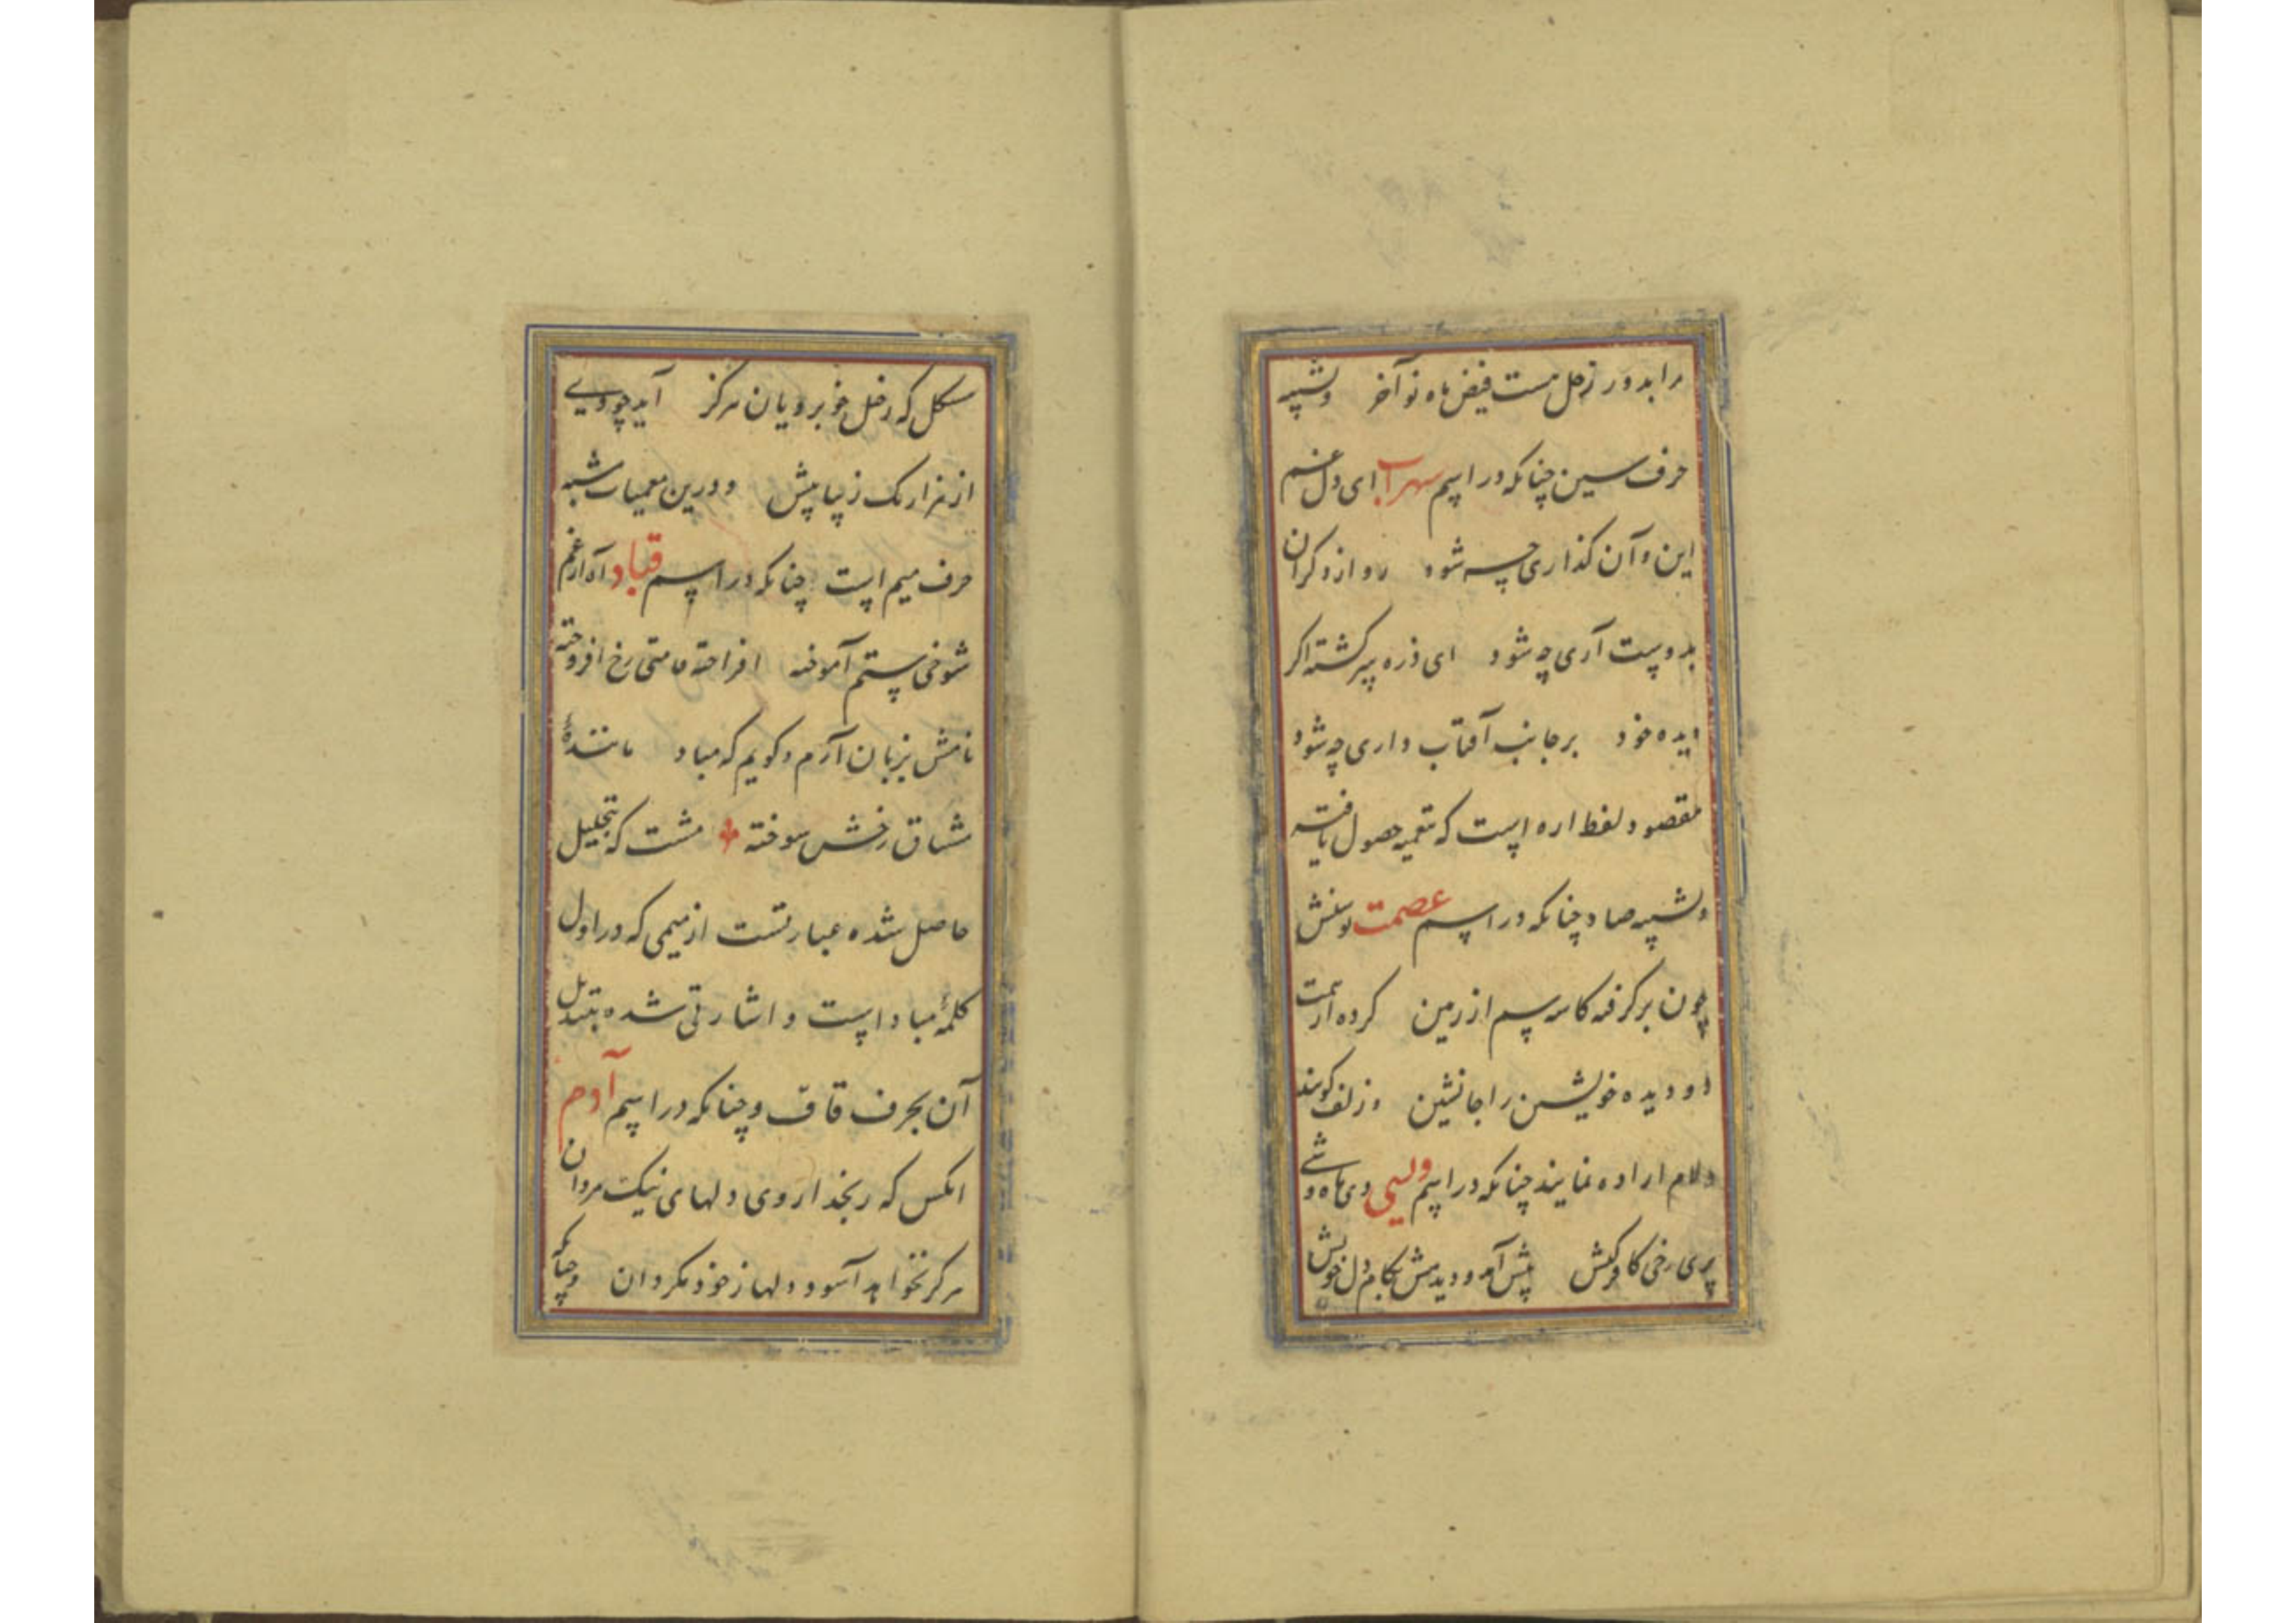 مرا بدور زحل هست فیض ماه نو آخر وشبیه
حرف سین چنانکه در اسم سهراب ای دل غم
این و آن گذاری چه شود رو از دگران
بدوست آری چه شود ای ذره پیر گشته اگر
دیده خود بر جانب آفتاب داری چه شود
مقصود لفظ اره است که بتعمیه حصول یافته
وشبیه صاد چنانکه در اسم عصمت توسنش
چون برگرفته کاسه سم از زمین کرده از
دو دیده خویشتن را جانشین وزلف گویند
ولام اراده نمایند چنانکه در اسم ولی دی ماه وشی
پری رخی کافر کیش پیش آمد و دیدمش بکام دل خویش
مشکل که رخیل خوبرویان هرگز آید چو ویی
از هزار یک زیبا پیش ودرین معمیات شبیه
حرف میم است چنانکه در اسم قباد آه از غم
شوخی ستم آموخته افراخته قامتی رخ افروخته
نامش بزبان آرم و گویم که مباد مانندهٔ
مشتاق رخش سوخته مشت که بتحلیل
حاصل شده عبارتست از میمی که در اول
کلمهٔ مباد است و اشارتی شده بتبدیل
آن بحرف قاف وچنانکه در اسم آدم
انکس که رنجد از وی دلهای نیک مردان
هرگز نخواهد آسود دلها ز خود مگردان وچنانکه